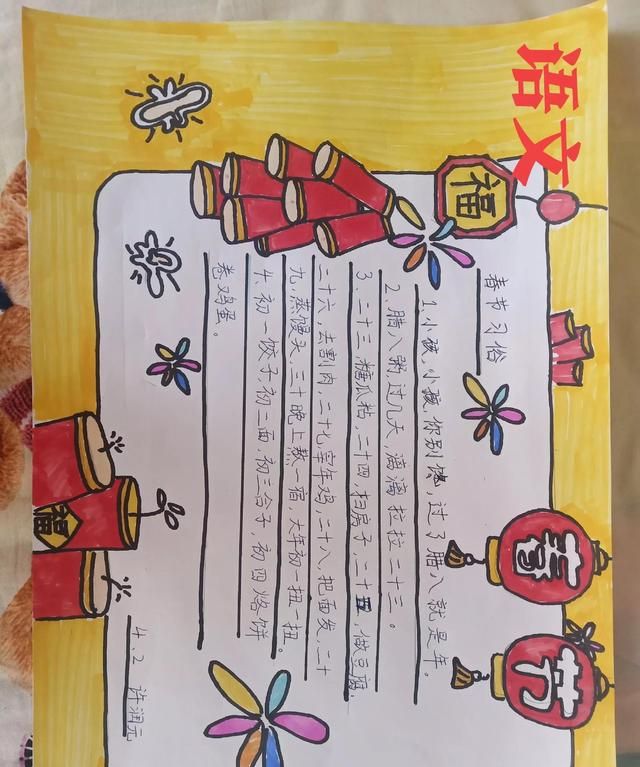 语文
福
春节习俗
1.小孩,小孩,你别馋,过了腊八就是年。
2、腊八粥,过几天,漓漓拉拉二十三。
3、二十三,糖瓜粘,二十四,扫房子,二十五,做豆腐,
二十六,去割肉,二十七,宰年鸡,二十八,把面发,二十
九,蒸馒头,三十晚上熬一宿,大年初一扭一扭。
4、初一饺子,初二面,初三合子,初四烙饼
卷鸡蛋。
春
节
福
4.2 许润元